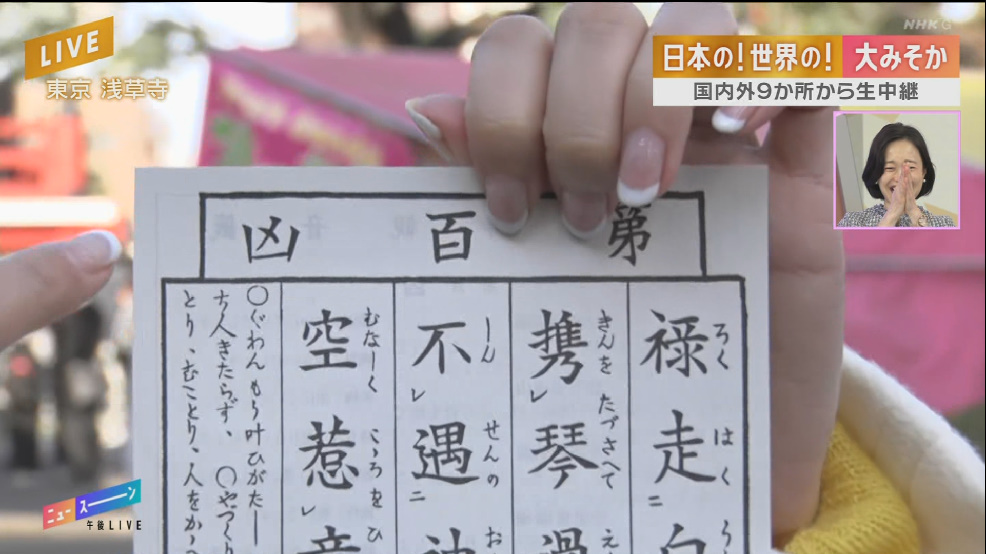 LIVE
東京 浅草寺
NHK G
日本の！世界の！ 大みそか
国内外9か所から生中継
第百凶
禄走
ろく はく
携レ琴
きんを たづさへて
不レ遇ニ
せんの
空惹レ
むなーく こゝろを ひ
○ぐわんもう叶ひがたー
ち人きたらず、
とり、むことり、人を
ニュースーン
午後LIVE